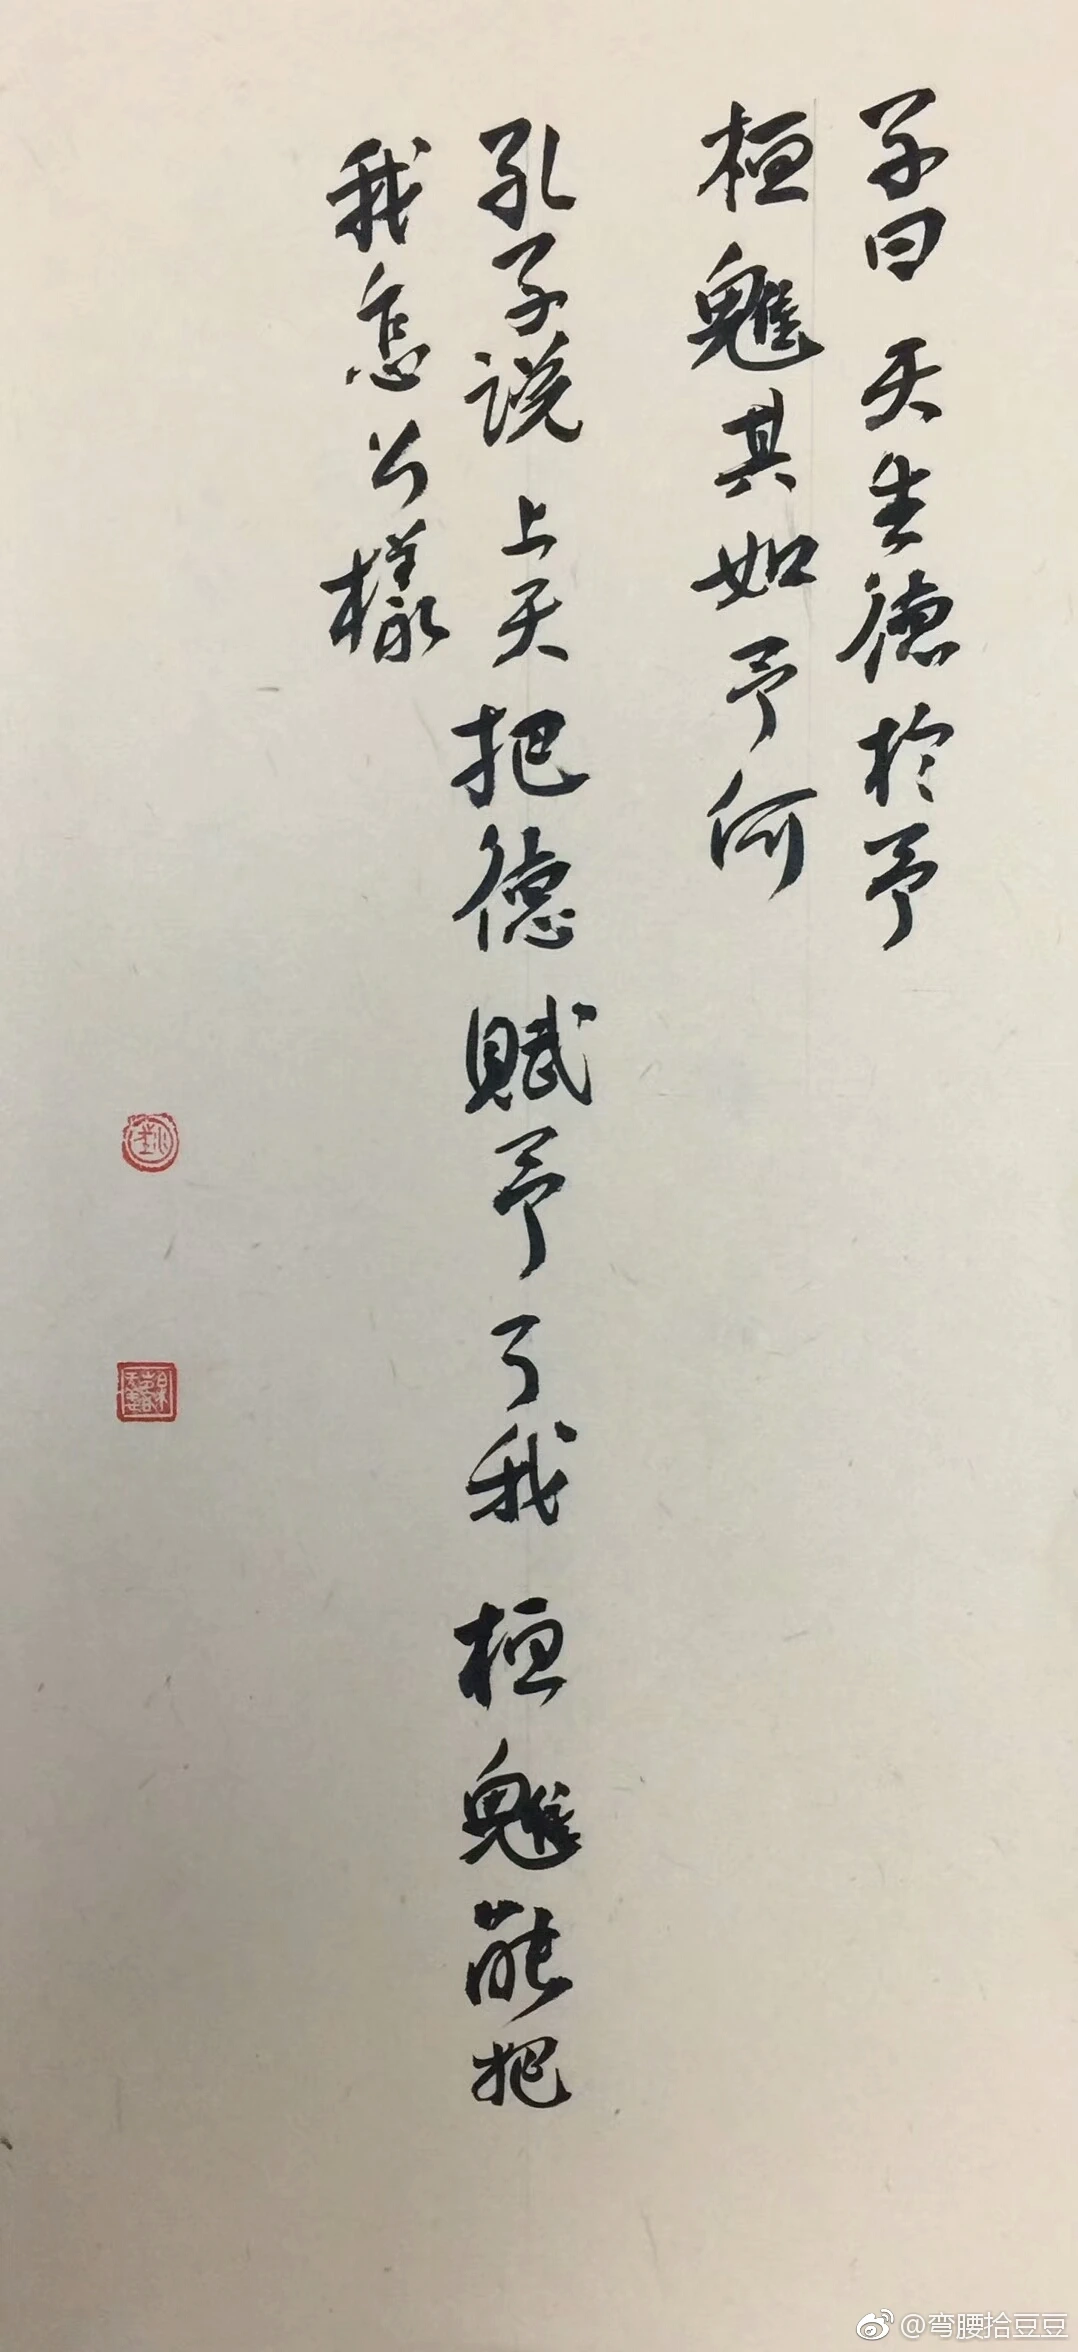 子曰 天生德於予
桓魋其如予何
孔子说 上天把德赋予了我 桓魋能把
我怎么樣
@弯腰拾豆豆